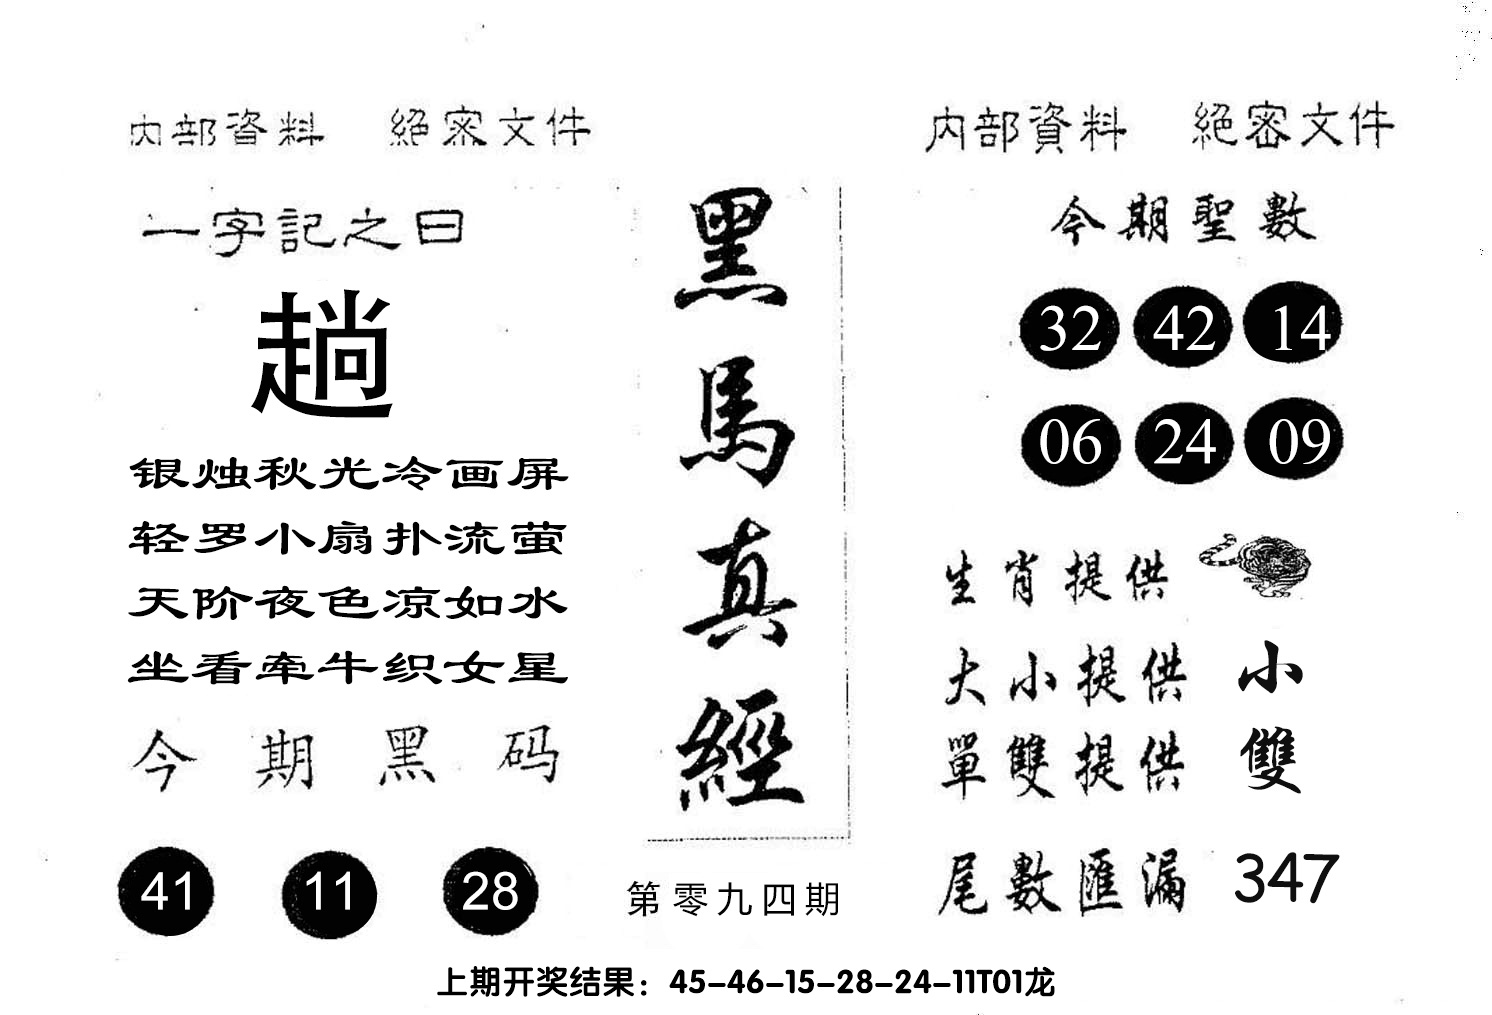 内部資料 絕密文件
一字記之曰
趟
银烛秋光冷画屏
轻罗小扇扑流萤
天阶夜色凉如水
坐看牵牛织女星
今期黑码
41 11 28
黑馬真經
第零九四期
内部資料 絕密文件
今期聖數
32 42 14
06 24 09
生肖提供
大小提供 小
單雙提供 雙
尾數匯漏 347
上期开奖结果：45-46-15-28-24-11T01龙